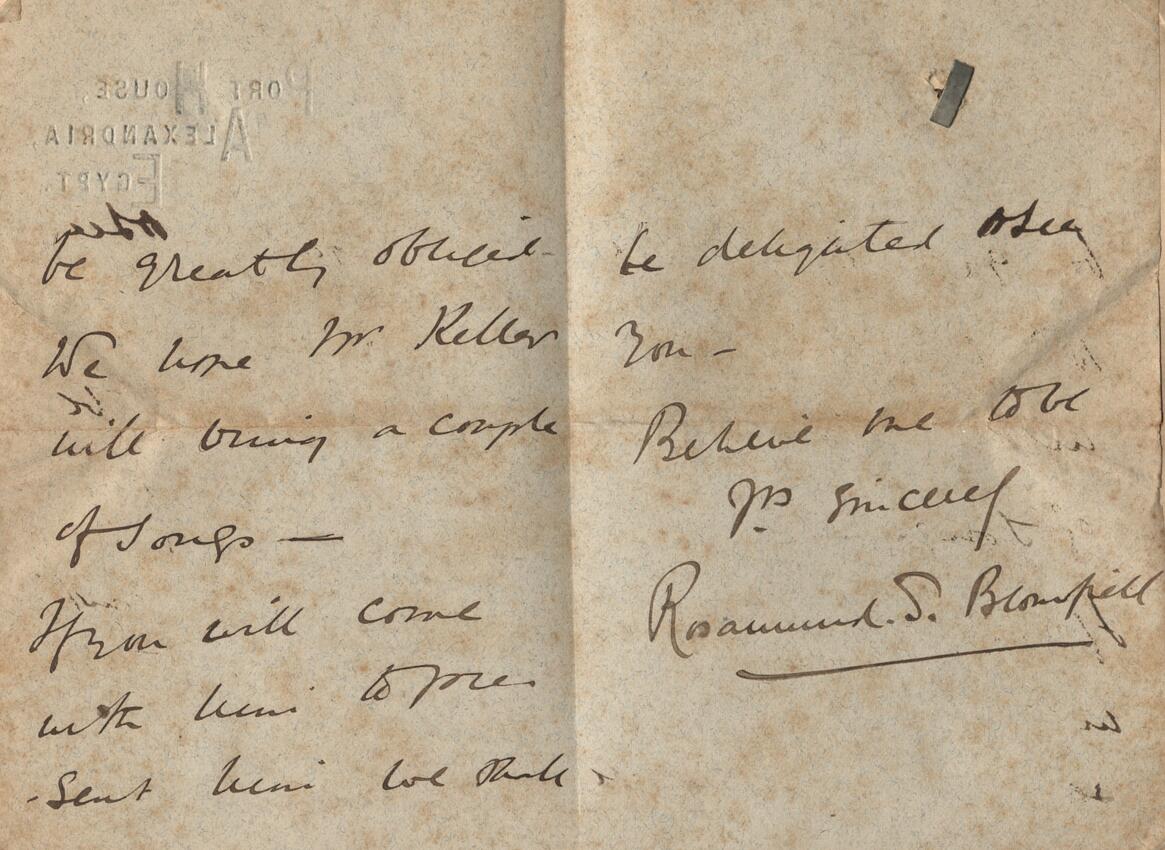 PORT HOUSE,
ALEXANDRIA,
EGYPT.
be greatly obliged -
We hope Mr Kellar
will bring a couple
of songs —
If you will come
with him to pre
- sent him we shall
be delighted to see
you -
Believe me to be
Yrs sincerely
Rosamund. S. Blomfield